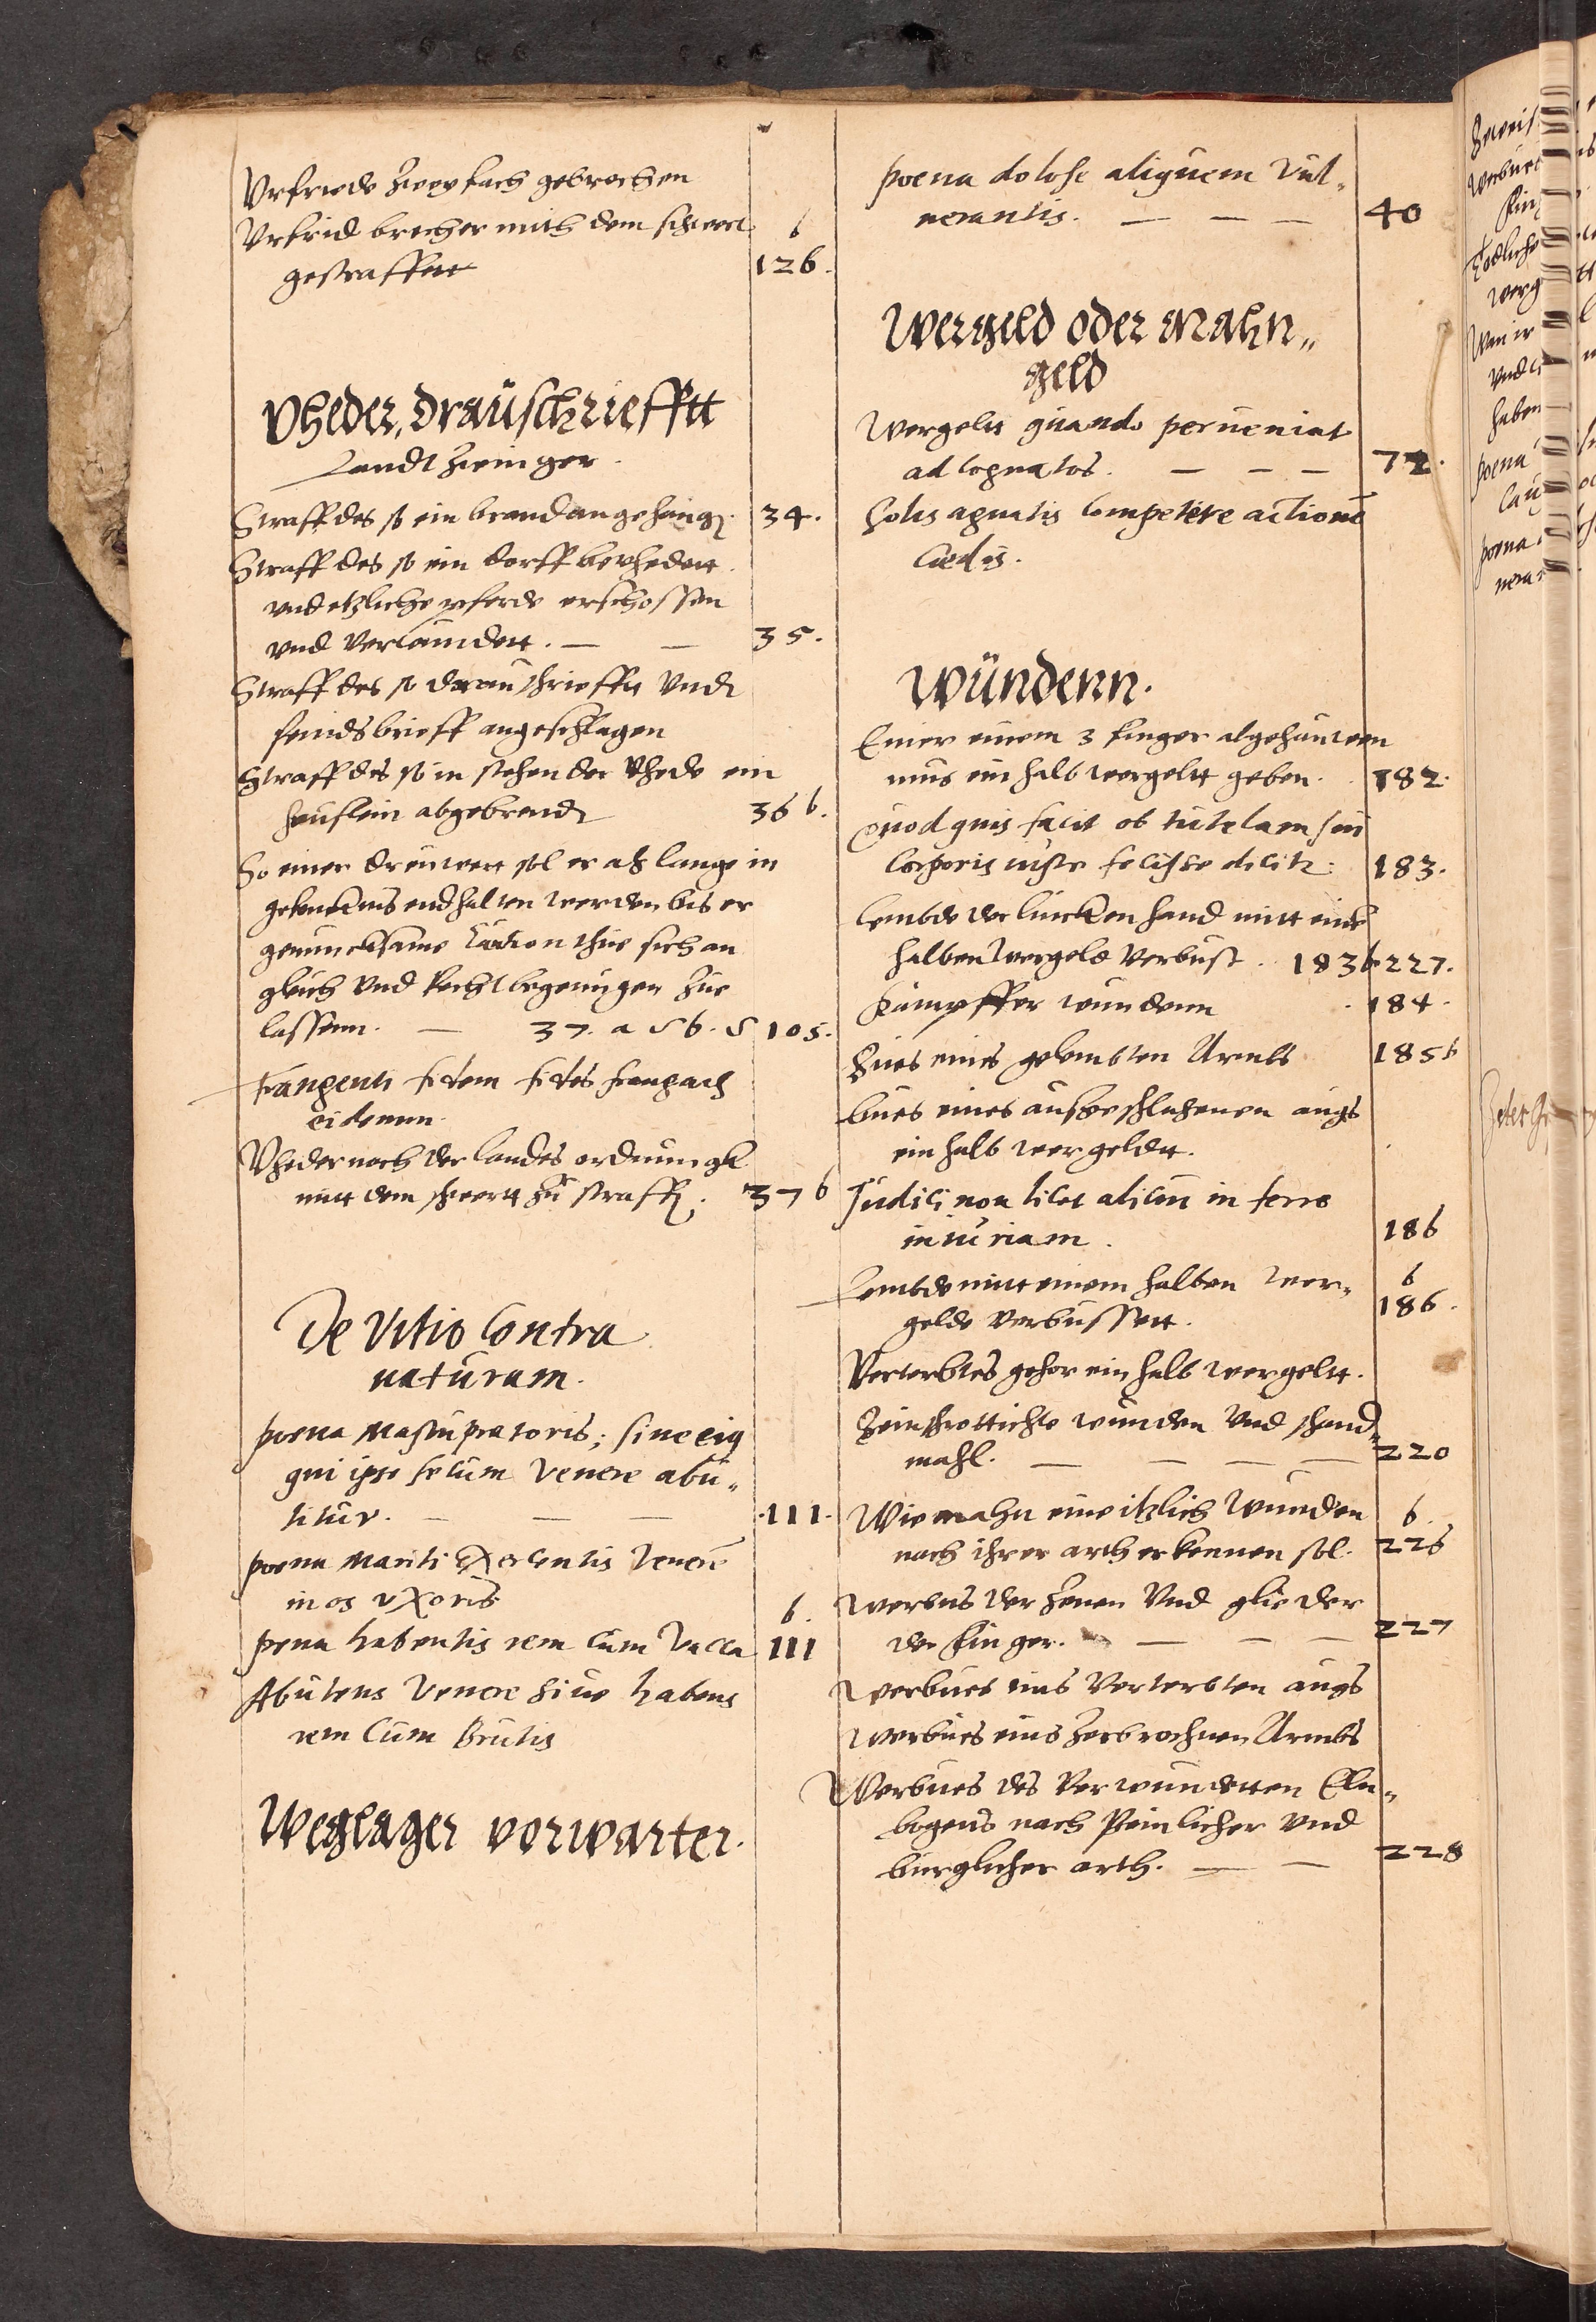 Vrfriede zweyfach gebrochen
Vrfrid brecher mith dem schwert b
gestraffett 126.
Vheder, drauschriefftt
Landt zwinger.
Straff des so ein brand angehang 34.
Straff des so ein dorff bevhedett
vnd etzliche pferde erschossen
vnd 35.
Straff des so drauschriefft vnd
feinds brieff angeschlagen
Straff des so in stehender vhede ein
heuslein abgebrend 36 b.
So einer dreuwett sol er alß lange in
gefencknis endhalten werden bis er
caution thue sich an
gleich vnd recht begnugen zue
lassenn. — 37. a b. 105.
frangenti fidem fides frangatur
eidemm.
Vheder nach der landes ordnungk
mitt dem schwertt zu straffen. 37 b
De Vitio Contra
naturam.
poena Mastupratoris; siue eius
qui ipse secum Venere abu„
titur. — — — 111.
poena Mariti Exercentis Venerem
in os vxoris b.
pena habentis rem cum Vacca 111
Abutens Venere siue habens
rem Cum Brutis
Weglager vorwarter.
poena dolose aliquem Vul„
nerantis. — — — 40
Wergeld oder Mahn„
geld
Wergeltt quando perueniat
ad cognatos. — — — 72.
Solis agnatis Competere actionem
Caedis.
Wündenn.
Einer einem 3 finger abgehauwen
mus ein halb wergeltt geben. 182.
Quod quis facit ob tutelam sui
Corporis iuste fecisse dicitur. 183.
lembde der lincken hand mitt einem
halben wergeld verbust. 183 b 227.
Kampffer wundenn 184.
Bues eines gelembten Armbs 185 b
bues eines ausgeschlagenen augs
ein halb wergeldtt.
Judici non licet alicui inferre
iniuriam. 186
Lembde mitt einem halben wer„ b
gelde verbussett. 186.
Verterbtes gehor ein halb wergeltt.
Beinschrottichte wunden vnd schand„
mahl. — — — — 220
Wie mahn eine itzlich wunden b.
nach ihrer arth erkennen sol. 226
werbus der zenen vnd glieder
der finger. — — — 227
Werbues eins verterbten augs
Werbues eins zerbrochnen Armbs
Werbues des verwundetten Eln„
bogens nach Peinlicher vnd
burglicher arth. — — 228